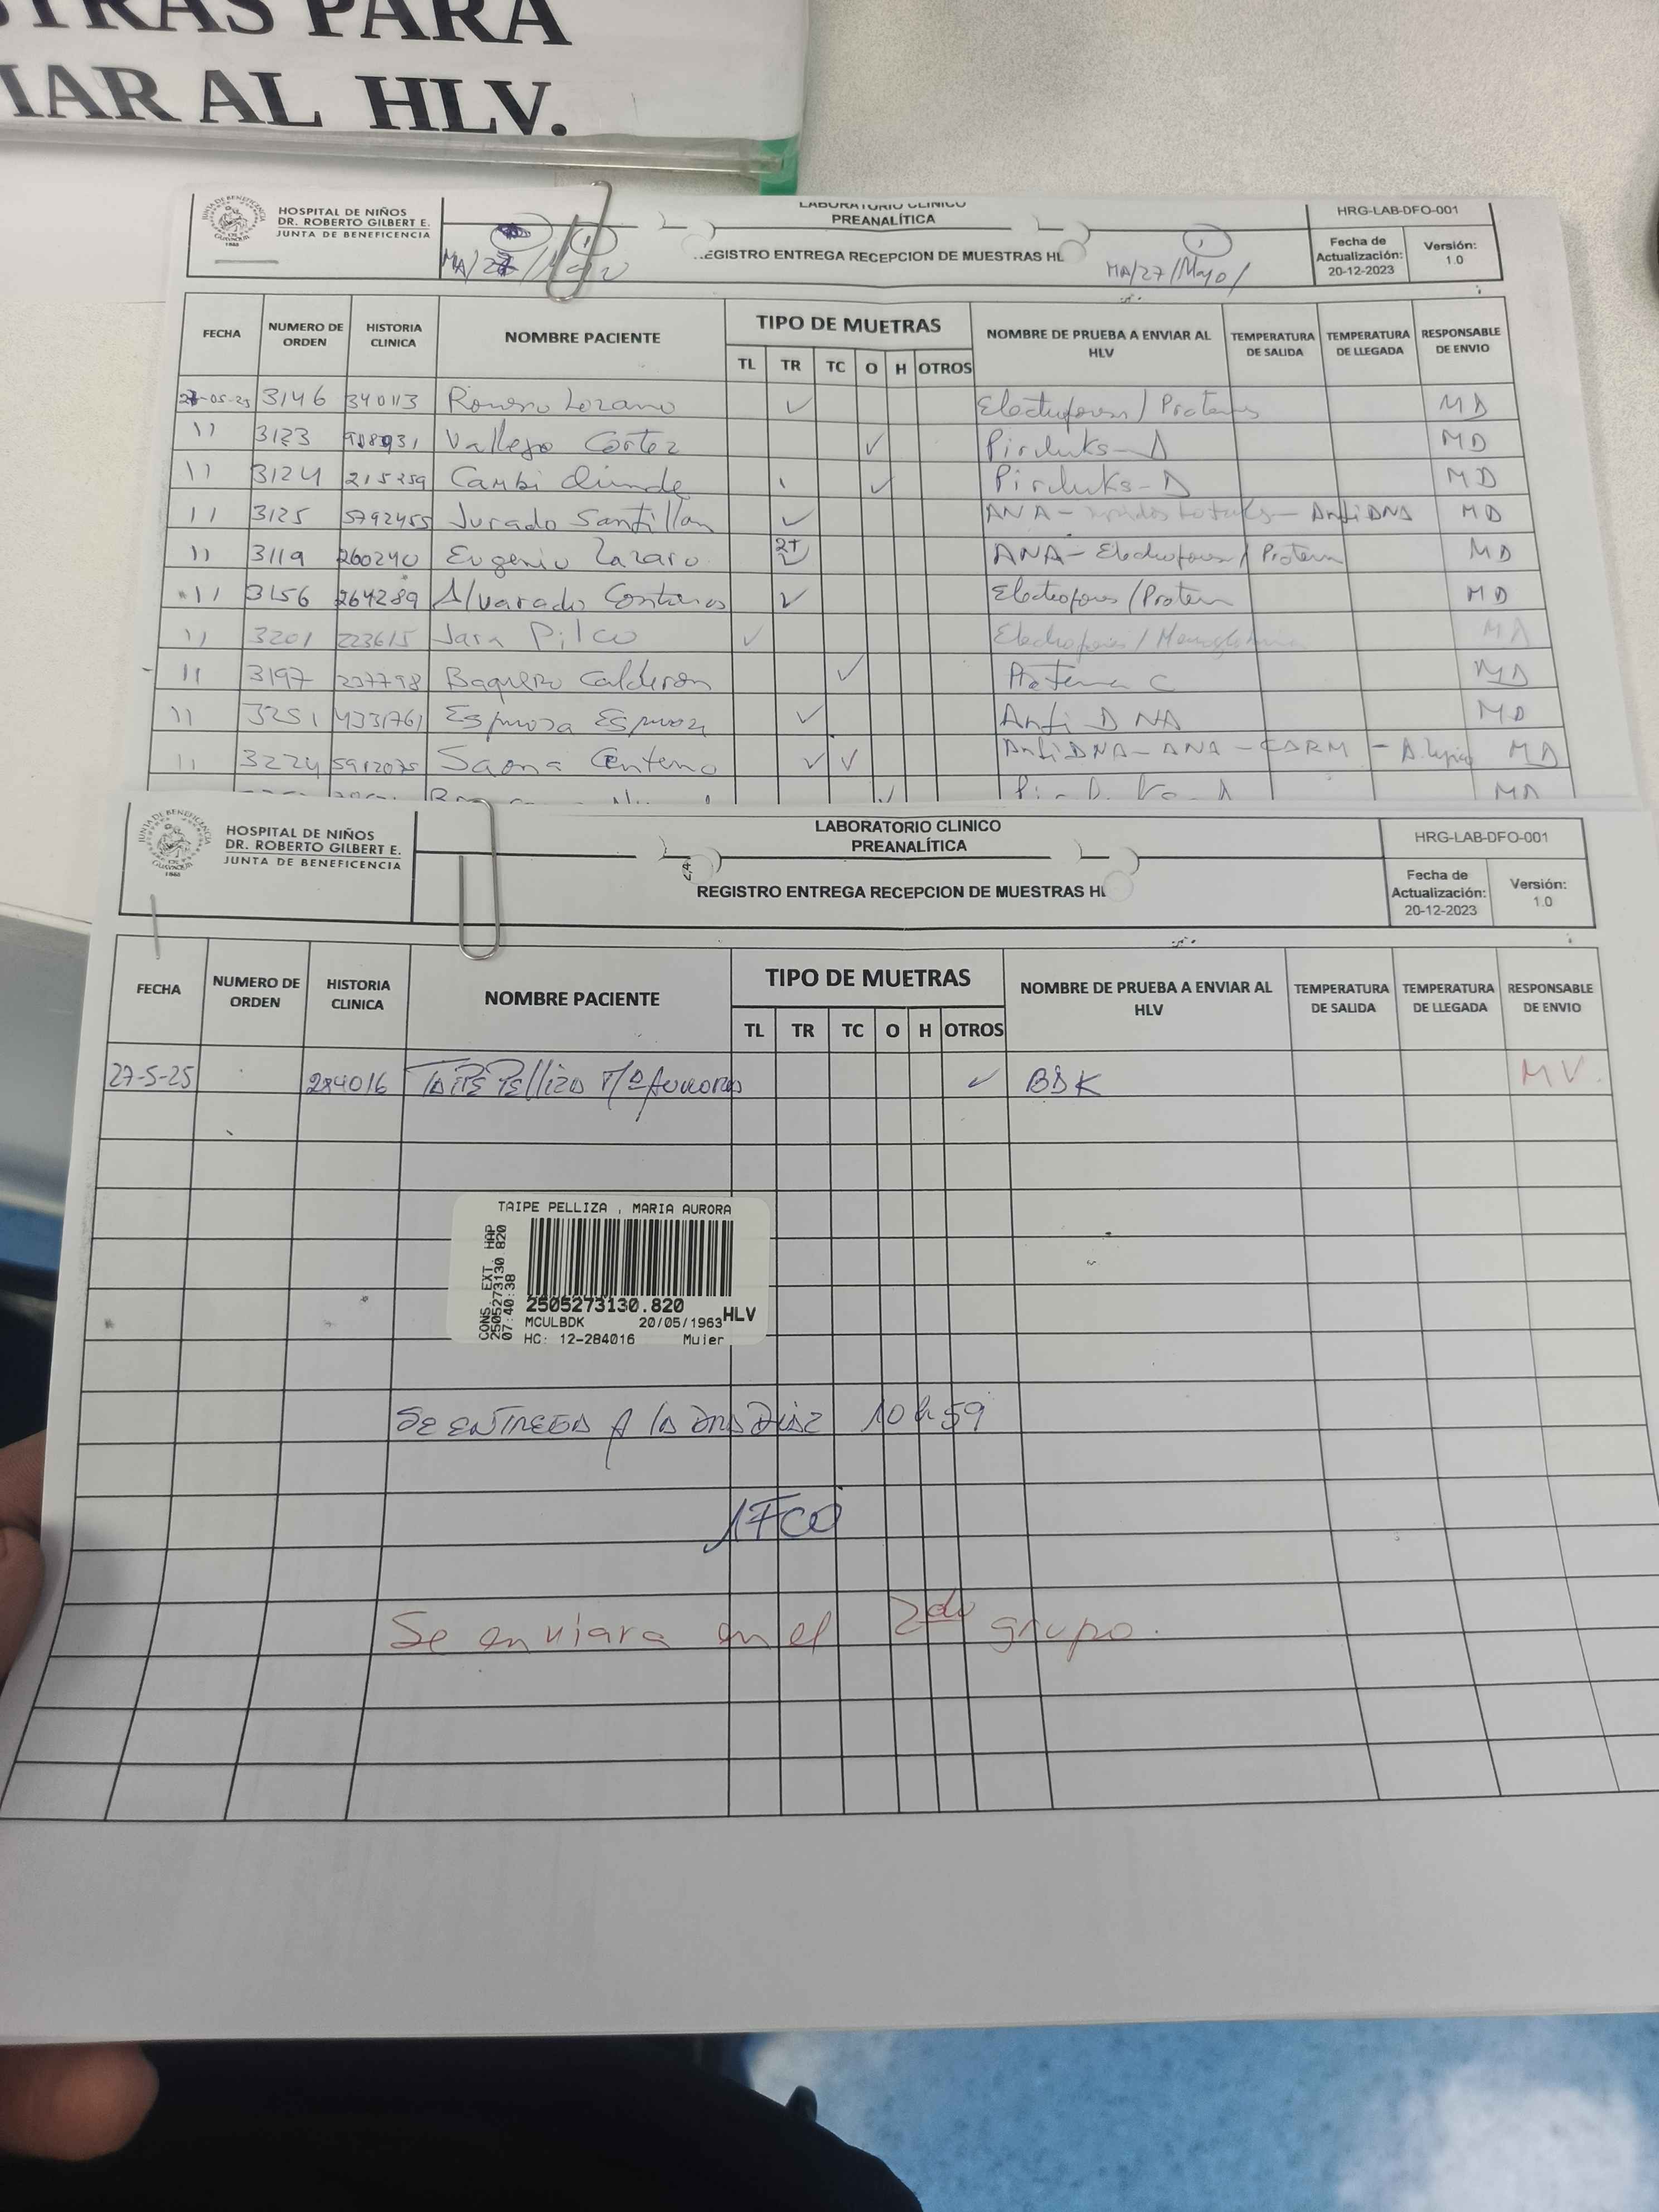 STRAS PARA
IAR AL HLV.
JUNTA DE BENEFICENCIA
GUAYAQUIL
HOSPITAL DE NIÑOS
DR. ROBERTO GILBERT E.
JUNTA DE BENEFICENCIA
LABORATORIO CLINICO
PREANALÍTICA
EGISTRO ENTREGA RECEPCION DE MUESTRAS HL
MA/27/Mayo/
HRG-LAB-DFO-001
Fecha de Actualización: 20-12-2023
Versión: 1.0
FECHA NUMERO DE ORDEN HISTORIA CLINICA NOMBRE PACIENTE TIPO DE MUETRAS NOMBRE DE PRUEBA A ENVIAR AL HLV TEMPERATURA DE SALIDA TEMPERATURA DE LLEGADA RESPONSABLE DE ENVIO
TL TR TC O H OTROS
3146 340113 Romero Lozano ✓ MD
11 3123 Vallejo Cortez ✓ MD
11 3124 215259 Cambi ✓ MD
11 3125 5792455 Jurado Santillan ✓ ANA - - Anti DNA MD
11 3119 260240 Eugenio Lazaro 2T ANA - MD
11 3156 264289 Alvarado ✓ MD
11 3201 223615 Jara Pilco ✓
11 3197 237798 Baquero Calderon ✓ Proteina C MD
11 3251 4331761 Espinoza ✓ Anti DNA MD
11 3224 5912075 Saona Centeno ✓ ✓ Anti DNA - ANA - MD
HOSPITAL DE NIÑOS
DR. ROBERTO GILBERT E.
JUNTA DE BENEFICENCIA
LABORATORIO CLINICO
PREANALÍTICA
REGISTRO ENTREGA RECEPCION DE MUESTRAS HL
HRG-LAB-DFO-001
Fecha de Actualización: 20-12-2023
Versión: 1.0
FECHA NUMERO DE ORDEN HISTORIA CLINICA NOMBRE PACIENTE TIPO DE MUETRAS NOMBRE DE PRUEBA A ENVIAR AL HLV TEMPERATURA DE SALIDA TEMPERATURA DE LLEGADA RESPONSABLE DE ENVIO
TL TR TC O H OTROS
27-5-25 284016 Taipe Pelliza Mª Aurora ✓ BDK MV.
TAIPE PELLIZA , MARIA AURORA
CONS. EXT. HAP
2505273130 820
07:40:38
2505273130.820 HLV
MCULBDK 20/05/1963
HC: 12-284016 Mujer
SE ENTREGA A la DRA Diaz 10h59
Se enviara en el 2do grupo.